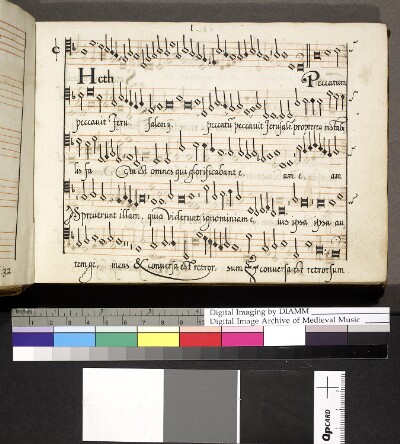 I.
Heth Peccatum
peccavit Jeru salem. peccatũ peccavit Jerusalẽ propterea instabi
lis fa Qui est omnes qui glorificabant e. am e. am
Spreverunt illam, quia viderunt ignominiam e. ius ipsa ipsa au
tem ge. mens & conversa est retror. sum & conversa est retrorsum
32
Digital Imaging by DIAMM
Digital Image Archive of Medieval Music
inches 1 2 3 4
QPCARD